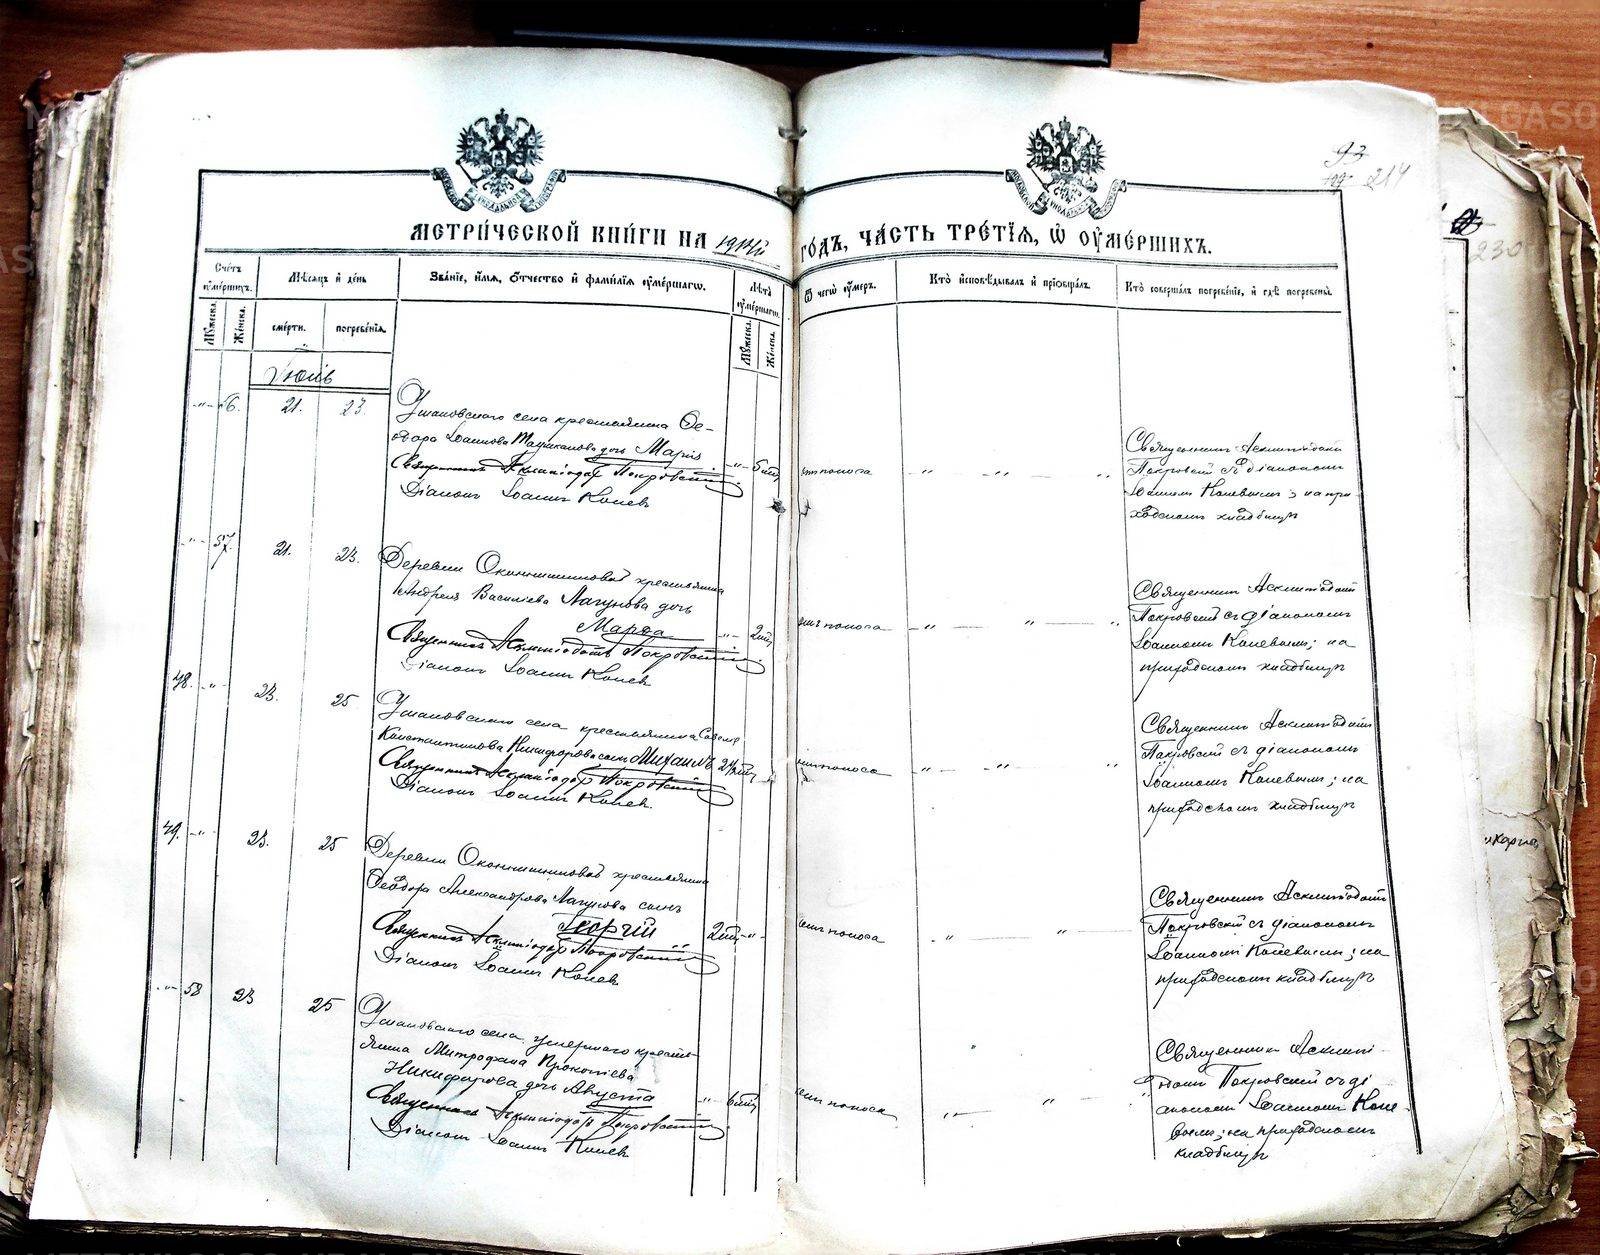 93
214
230
МЕТРИ́ЧЕСКОЙ КНИ́ГИ НА 1914й ГО́ДЪ, ЧА́СТЬ ТРЕ́ТІЯ, Ѡ ОУМЕ́РШИХЪ.
Сче́тъ оуме́ршихъ.
Му́жеска.
Же́нска.
Мѣ́сяцъ и де́нь
сме́рти.
погребе́нія.
Зва́ніе, и́мя, о́тчество и фами́лія оуме́ршагѡ.
Лѣ́та оуме́ршагѡ.
Му́жеска.
Же́нска.
Ѿ чегѡ̀ оу́меръ.
Кто̀ исповѣ́дывалъ и пріобща́лъ.
Кто̀ соверша́лъ погребе́ніе, и гдѣ̀ погребены̀.
Іюль
-"- 56. 21. 23.
Усмановскаго села крестьянина Ѳе-
одора Іоаннова дочь Марія
Священникъ Асклипіодотъ Покровскій
Діаконъ Іоаннъ Коневъ
-"- 5 мц
отъ поноса
" " "
Священникъ Асклипіодотъ
Покровскій съ діакономъ
Іоанномъ Коневымъ; на при-
ходскомъ кладбищѣ
-"- 57. 21. 23.
Деревни крестьянина
Андрея Васильева Лагунова дочь
Марѳа
Священникъ Асклипіодотъ Покровскій
Діаконъ Іоаннъ Коневъ
-"- 2 мц
отъ поноса
" " "
Священникъ Асклипіодотъ
Покровскій съ діакономъ
Іоанномъ Коневымъ; на
приходскомъ кладбищѣ
48. -"- 23. 25
села крестьянина
Константинова Никифорова сынъ Михаилъ
Священникъ Асклипіодотъ Покровскій
Діаконъ Іоаннъ Коневъ.
отъ поноса
" " "
Священникъ Асклипіодотъ
Покровскій съ діакономъ
Іоанномъ Коневымъ; на
приходскомъ кладбищѣ
49. -"- 23. 25
Деревни крестьянина
Ѳеодора Александрова Лагунова сынъ
Георгій
Священникъ Асклипіодотъ Покровскій
Діаконъ Іоаннъ Коневъ
2 мц -"-
отъ поноса
" "
Священникъ Асклипіодотъ
Покровскій съ діакономъ
Іоанномъ Коневымъ; на
приходскомъ кладбищѣ
-"- 58 23 25
села умершаго кресть-
янина Митрофана Прокопіева
Никифорова дочь Августа
Священникъ Асклипіодотъ Покровскій
Діаконъ Іоаннъ Коневъ
-"- 6 мц
отъ поноса
" " "
Священникъ Асклипі-
Покровскій съ ді
акономъ Іоанномъ Коне-
вымъ; на приходскомъ
кладбищѣ